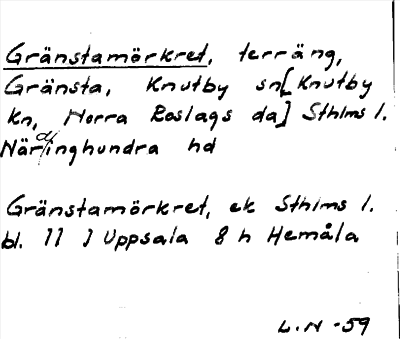 Gränstamörkret, terräng,
Gränsta, Knutby sn [Knutby
kn, Norra Roslags da] Sthlms l.
Närdinghundra hd
Gränstamörkret, ek Sthlms l.
bl. 11 J Uppsala 8 h Hemåla
L.N -59